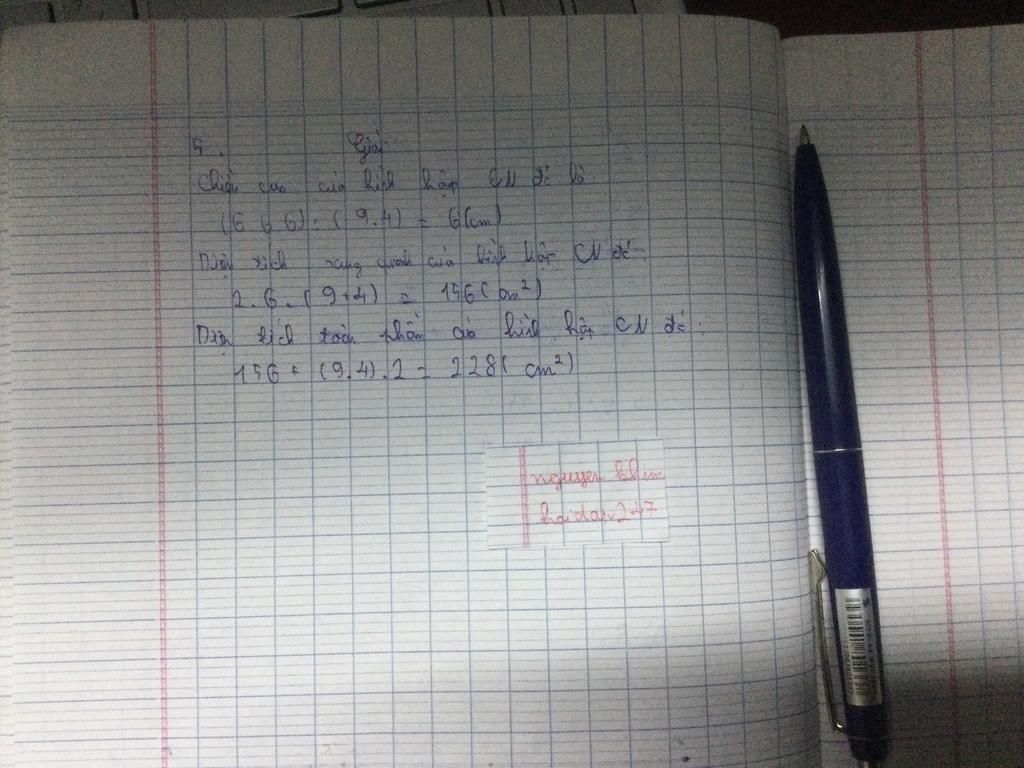 5. Giải
Chiều cao của hình hộp CN đó là:
(6 6 6) : (9.4) = 6 (cm)
Diện tích xung quanh của hình hộp CN đó:
2.6.(9+4) = 156 (cm²)
Diện tích toàn phần của hình hộp CN đó:
156 + (9.4).2 = 228 (cm²)
nguyen
hoidap247